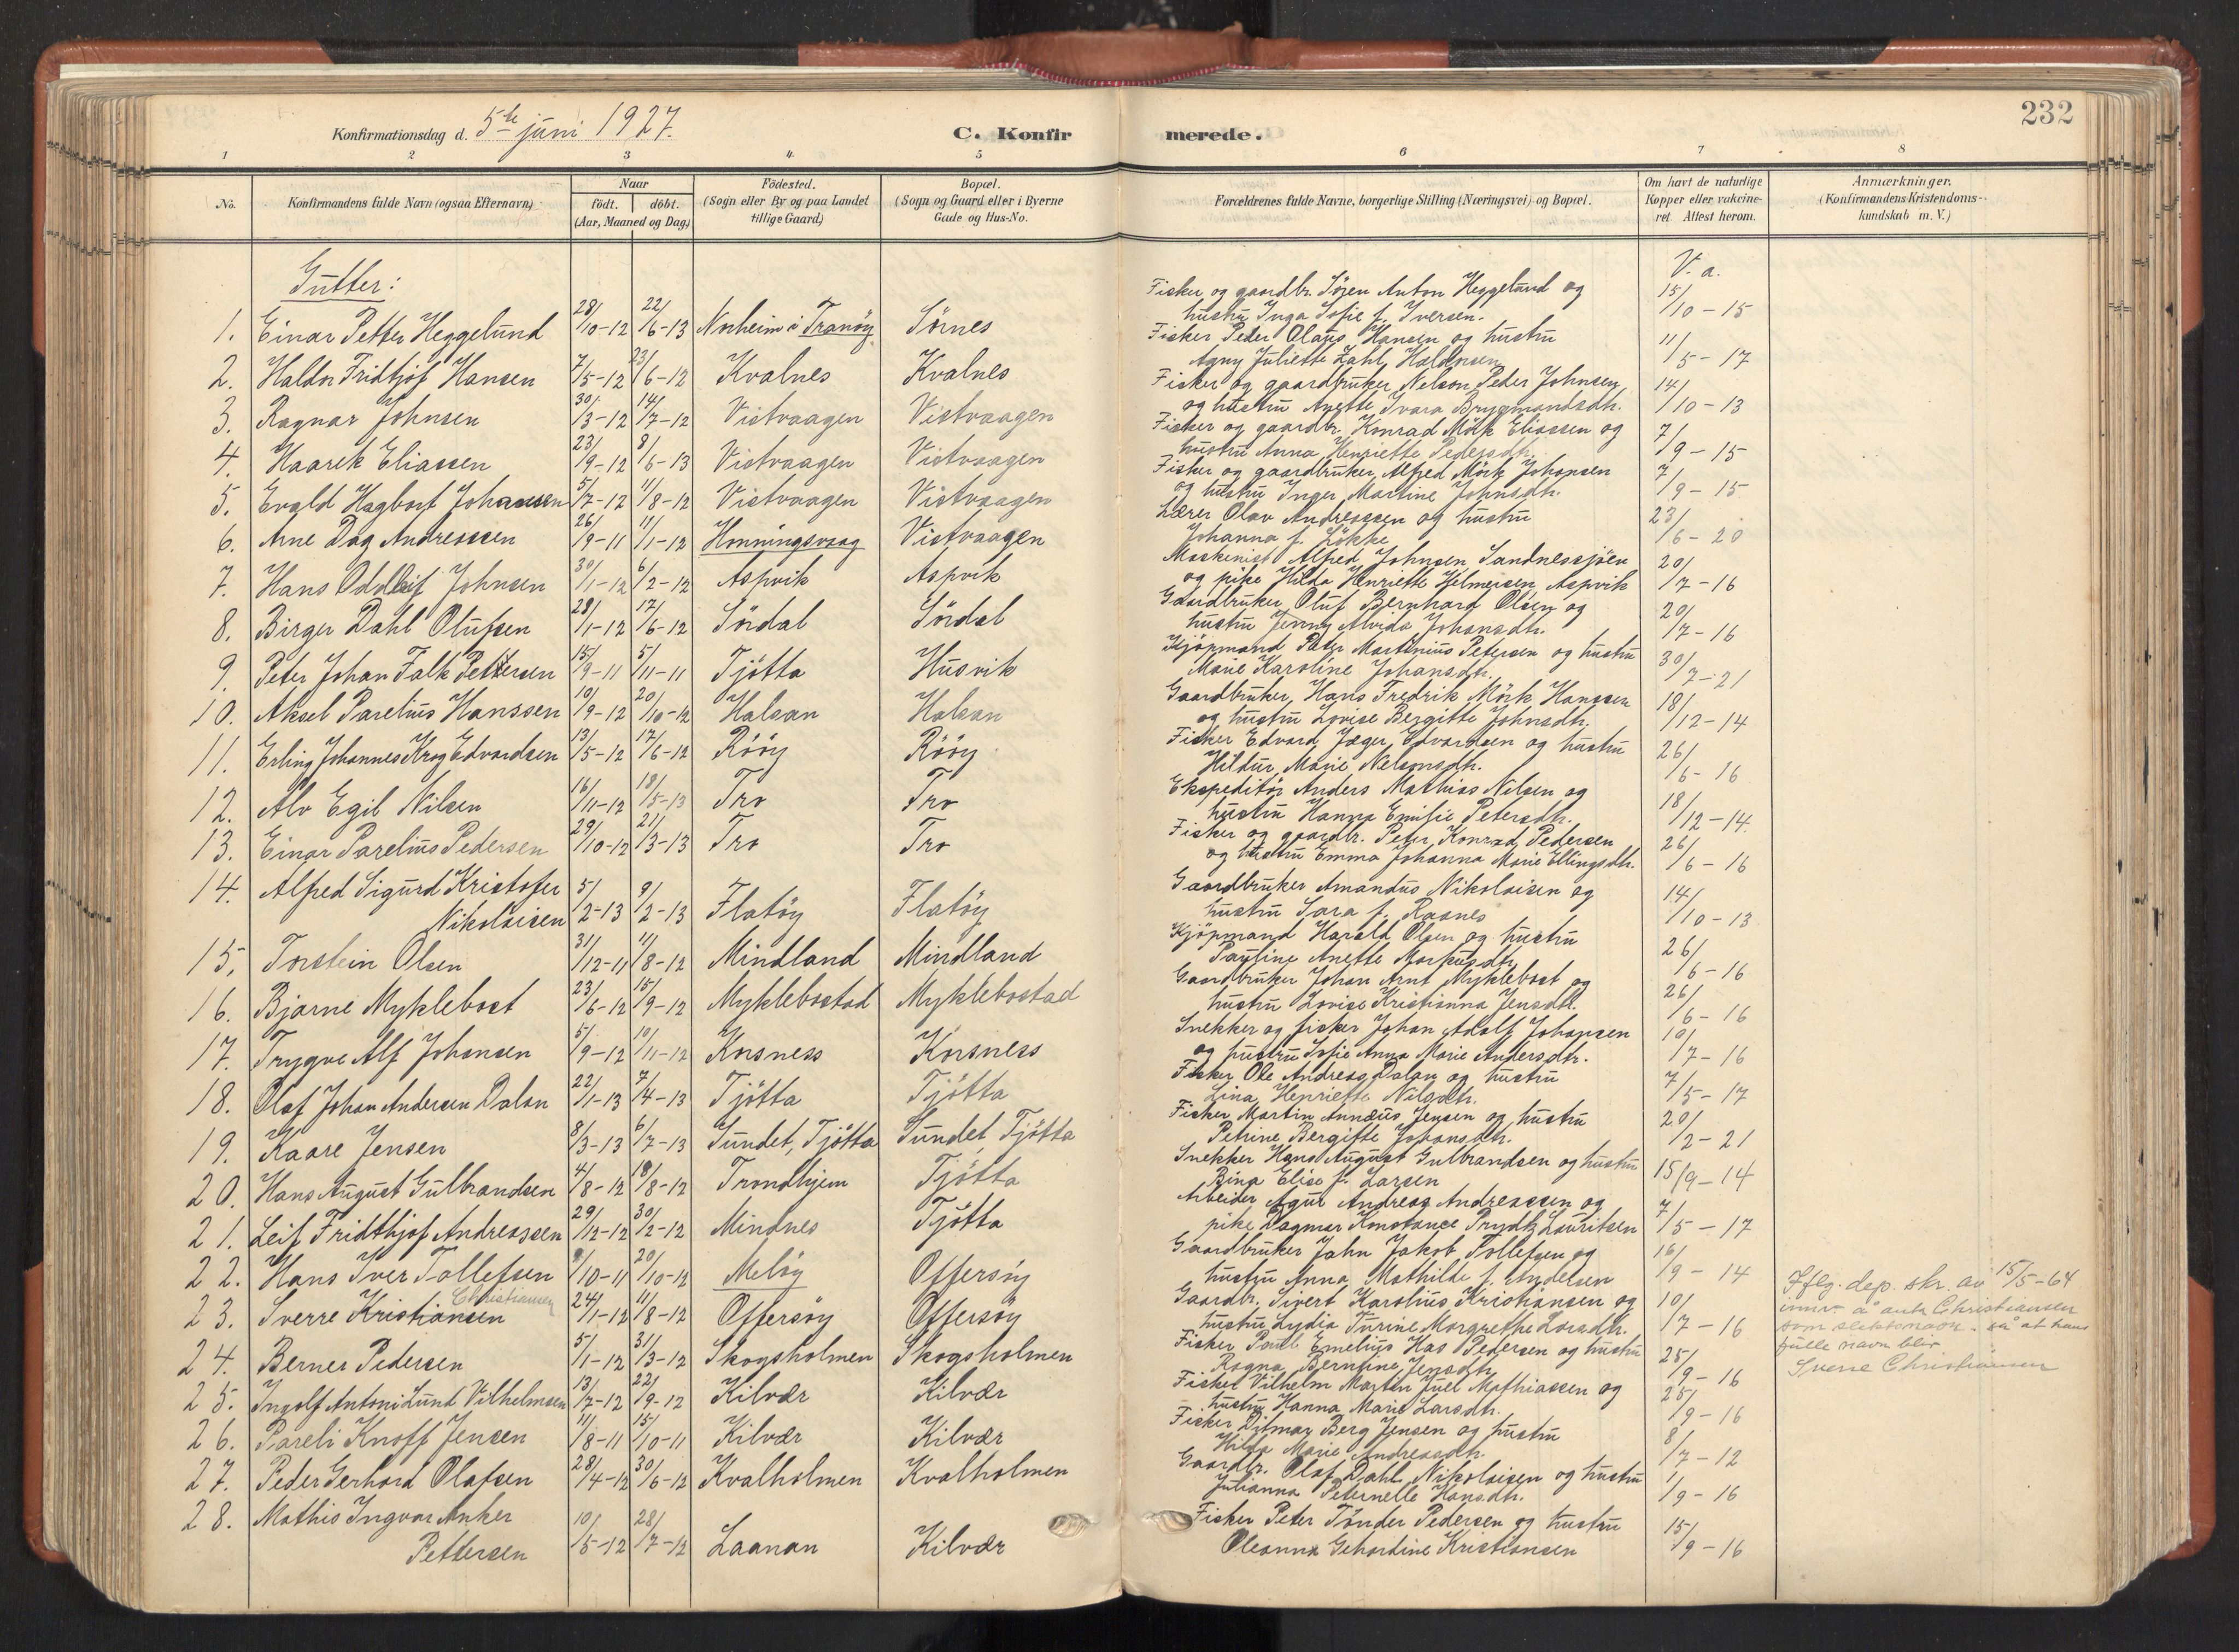 232
Konfirmationsdag d. 5te juni 1927.
C. Konfirmerede.
1 2 3 4 5 6 7 8
No.
Konfirmandens fulde Navn (ogsaa Efternavn)
Naar
födt. döbt.
(Aar, Maaned og Dag)
Födested.
(Sogn eller By og paa Landet tillige Gaard)
Bopæl.
(Sogn og Gaard eller i Byerne Gade og Hus-No.
Forældrenes fulde Navne, borgerlige Stilling (Næringsvei) og Bopæl.
Om havt de naturlige Kopper eller vakcineret Attest herom.
Anmærkninger.
(Konfirmandens Kristendomskundskab m. V.)
Gutter:
V. a.
1. Einar Petter Heggelund 28/10-12 22/6-13 Norheim i Tranöy Sörnes Fisker og gaardbr. Sören Anton Heggelund og hustru Inga Sofie f. Iversen. 15/10-15
2. Haldor Fridtjof Hansen 7/5-12 23/6-12 Kvalnes Kvalnes Fisker Peder Olaus Hansen og hustru Agny Juliette Zahl Haldorsen 11/5-17
3. Ragnar Johnsen 30/3-12 14/7-12 Vistvaagen Vistvaagen Fisker og gaardbruker Nelson Peder Johnsen og hustru Anette Ivara Brygmandsdtr. 14/10-13
4. Haarek Eliassen 23/9-12 8/6-13 Vistvaagen Vistvaagen Fisker og gaardbr. Konrad Mörk Eliassen og hustru Anna Henriette Pedersdtr. 7/9-15
5. Evald Hagbart Johansen 5/7-12 11/8-12 Vistvaagen Vistvaagen Fisker og gaardbruker Alfred Mörk Johansen og hustru Inger Martine Johnsdtr. 7/9-15
6. Arne Dag Andreassen 26/9-11 11/1-12 Honningsvaag Vistvaagen Lærer Olav Andreassen og hustru Johanna f. Lökke 23/6-20
7. Hans Oddleif Johnsen 30/1-12 6/2-12 Aspvik Aspvik Maskinist Alfred Johnsen Sandnessjöen og pike Hilda Henriette Helmersen Aspvik 20/7-16
8. Birger Dahl Olufsen 28/1-12 17/6-12 Sördal Sördal Gaardbruker Oluf Bernhard Olsen og hustru Jenny Alvida Johansdtr. 20/7-16
9. Peter Johan Falk Pettersen 15/9-11 5/11-11 Tjötta Husvik Kjöpmand Peter Martinius Petersen og hustru Marie Karoline Johansdtr. 30/7-21
10. Aksel Parelius Hanssen 19/9-12 20/10-12 Halsan Halsan Gaardbruker Hans Fredrik Mörk Hanssen og hustru Lovise Bergitte Johnsdtr. 18/12-14
11. Erling Johannes Krog Edvardsen 13/5-12 17/6-12 Rööy Rööy Fisker Edvard Jæger Edvardsen og hustru Hildur Marie Nelsonsdtr. 26/6-16
12. Alv Egil Nilsen 16/11-12 18/5-13 Tro Tro Ekspeditör Anders Mathias Nilsen og hustru Hanna Emilie Petersdtr. 18/12-14.
13. Einar Parelius Pedersen 29/10-12 21/3-13 Tro Tro Fisker og gaardbr. Peter Konrad Pedersen og hustru Emma Johanna Marie Ellingsdtr. 26/6-16
14. Alfred Sigurd Kristofer Nikolaisen 5/2-13 9/2-13 Flatöy Flatöy Gaardbruker Amandus Nikolaisen og hustru Sara f. Raanes 14/10-13
15. Torstein Olsen 31/12-11 11/8-12 Mindland Mindland Kjöpmand Harald Olsen og hustru Pauline Anette Markusdtr. 26/6-16
16. Bjarne Myklebost 23/6-12 15/9-12 Myklebostad Myklebostad Gaardbruker Johan Arnt Myklebost og hustru Lovise Kristianna Jensdtr. 26/6-16
17. Trygve Alf Johansen 5/9-12 10/11-12 Korsness Korsness Snekker og fisker Johan Adolf Johansen og hustru Sofie Anna Marie Andersdtr. 10/7-16
18. Olaf Johan Andersen Dalan 22/1-13 7/4-13 Tjötta Tjötta Fisker Ole Andreas Dalan og hustru Lina Henriette Nilsdtr. 7/5-17
19. Kaare Jensen 8/3-13 6/7-13 Sundet, Tjötta Sundet, Tjötta Fisker Martin Annæus Jensen og hustru Petrine Bergitte Johansdtr. 20/2-21
20. Hans August Gulbrandsen 4/8-12 18/8-12 Trondhjem Tjötta Snekker Hans August Gulbrandsen og hustru Bina Elise f. Larsen 15/9-14
21. Leif Fridthjof Andreassen 29/12-12 30/2-12 Mindnes Tjötta Arbeider Agur Andreas Andreassen og pike Dagmar Konstance Prydtz Lauritsen 7/5-17
22. Hans Iver Tollefsen 9/10-11 20/10-12 Melöy Offersöy Gaardbruker John Jakob Tollefsen og hustru Anna Mathilde f. Andersen 16/9-14
23. Sverre Kristiansen Christiansen 24/1-12 11/8-12 Offersöy Offersöy Gaardbr. Sivert Karolius Kristiansen og hustru Lydia Turine Margrethe Larsdtr. 10/7-16
Iflg. dep. skr. av 15/5-64
innv. å anta Christiansen
som slektsnavn - så at hans
fulle navn blir
Sverre Christiansen
24. Berner Pedersen 5/1-12 31/3-12 Skogsholmen Skogsholmen Fisker Paul Emelius Has Pedersen og hustru Ragna Berntine Jensdtr. 25/9-16
25. Ingolf Antoni Lund Vilhelmsen 13/7-12 22/9-12 Kilvær Kilvær Fisker Vilhelm Martin Juel Mathiassen og hustru Hanna Marie Larsdtr. 25/9-16
26. Pareli Knoff Jensen 11/8-11 15/10-11 Kilvær Kilvær Fisker Ditmar Berg Jensen og hustru Hilda Marie Andreasdtr. 8/7-12
27. Peder Gerhard Olafsen 28/4-12 30/6-12 Kvalholmen Kvalholmen Gaardbr. Olaf Dahl Nikolaisen og hustru Julianna Peternelle Hansdtr. 1/9-16
28. Mathis Ingvar Anker Pettersen 10/5-12 28/7-12 Laanan Kilvær Fisker Peter Tönder Pedersen og hustru Oleanna Gehardine Kristiansen 15/9-16